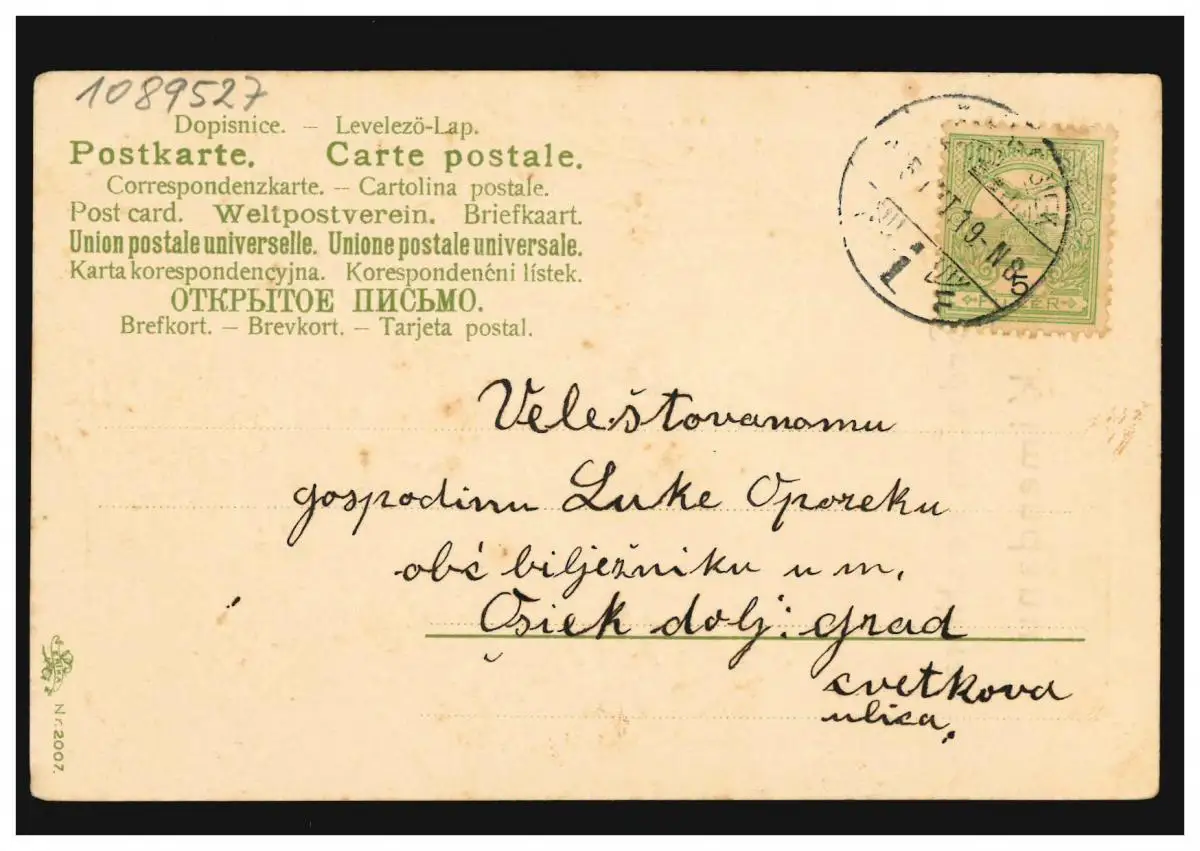 1089527
Dopisnice. – Levelezö-Lap.
Postkarte. Carte postale.
Correspondenzkarte. – Cartolina postale.
Post card. Weltpostverein. Briefkaart.
Union postale universelle. Unione postale universale.
Karta korespondencyjna. Korespondenční lístek.
ОТКРЫТОЕ ПИСЬМО.
Brefkort. – Brevkort. – Tarjeta postal.
5
Velештovanamu
gospodinu Luke Oporeku
obć bilježniku u m.
Osiek dolj. grad
svetkova
ulica.
ERIKA
Nr. 2007.